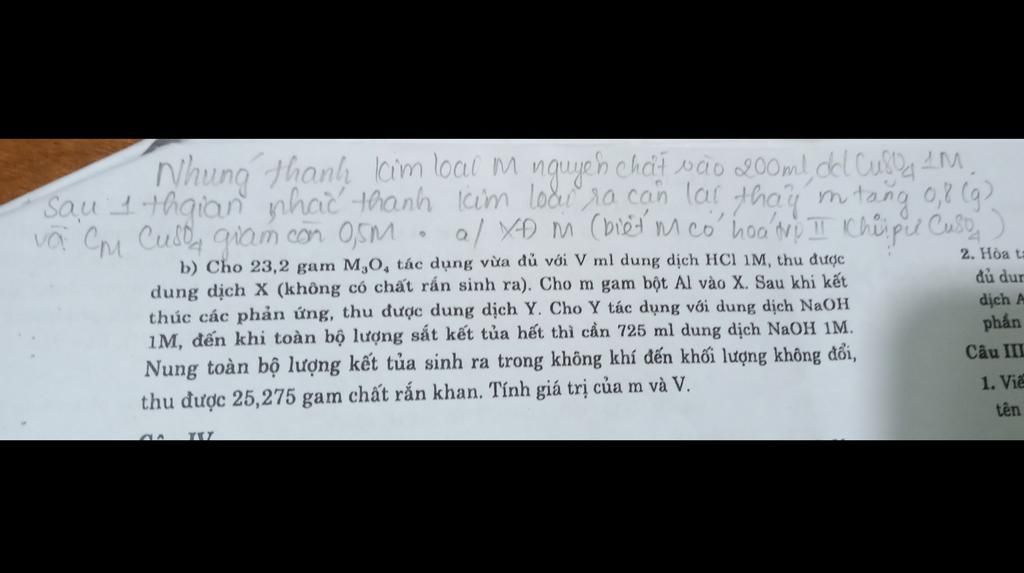 Nhúng thanh kim loại M nguyên chất vào 200ml dd CuSO4 1M.
Sau 1 thgian nhấc thanh kim loại ra cân lại thấy m tăng 0,8 (g)
và CM CuSO4 giảm còn 0,5M. a/ XĐ M (biết M có hoá trị II khi pư CuSO4)
b) Cho 23,2 gam M₃O₄ tác dụng vừa đủ với V ml dung dịch HCl 1M, thu được
dung dịch X (không có chất rắn sinh ra). Cho m gam bột Al vào X. Sau khi kết
thúc các phản ứng, thu được dung dịch Y. Cho Y tác dụng với dung dịch NaOH
1M, đến khi toàn bộ lượng sắt kết tủa hết thì cần 725 ml dung dịch NaOH 1M.
Nung toàn bộ lượng kết tủa sinh ra trong không khí đến khối lượng không đổi,
thu được 25,275 gam chất rắn khan. Tính giá trị của m và V.
2. Hòa
đủ
dịch
phần
Câu III
1.
tên